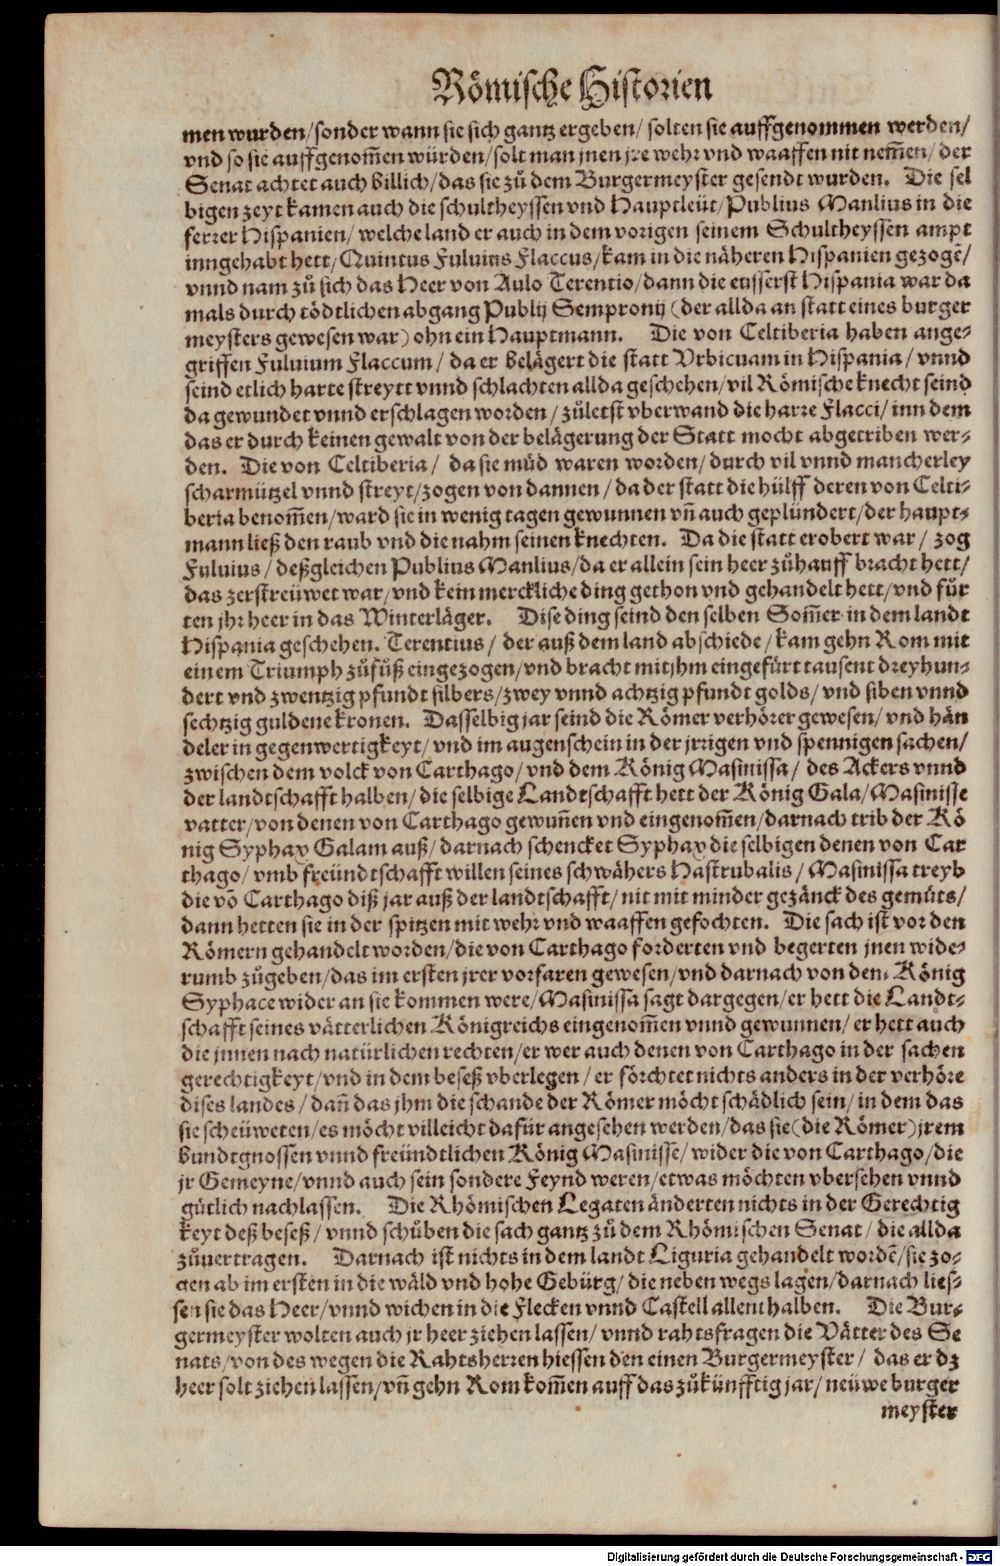 Römische Historien
men wurden/sonder wann sie sich gantz ergeben/ solten sie auffgenommen werden/
vnd so sie auffgenom̄en würden/solt man jnen jre wehr vnd waaffen nit nem̄en/ der
Senat achtet auch billich/das sie zů dem Burgermeyster gesendt wurden. Die sel
bigen zeyt kamen auch die schultheyssen vnd Hauptleüt/Publius Manlius in die
ferrer Hispanien/ welche land er auch in dem vorigen seinem Schultheyssen ampt
inngehabt hett/Quintus Fuluius Flaccus/kam in die näheren Hispanien gezogē/
vnnd nam zů sich das Heer von Aulo Terentio/dann die eusserst Hispania war da
mals durch tödtlichen abgang Publij Sempronij (der allda an statt eines burger
meysters gewesen war) ohn ein Hauptmann. Die von Celtiberia haben ange-
griffen Fuluium Flaccum/ da er belägert die statt Vrbicuam in Hispania/ vnnd
seind etlich harte streytt vnnd schlachten allda geschehen/vil Römische knecht seind
da gewundet vnnd erschlagen worden/ zůletst vberwand die harre Flacci/ inn dem
das er durch keinen gewalt von der belägerung der Statt mocht abgetriben wer-
den. Die von Celtiberia/ da sie müd waren worden/durch vil vnnd mancherley
scharmützel vnnd streyt/zogen von dannen/da der statt die hülff deren von Celti-
beria benom̄en/ward sie in wenig tagen gewunnen vn̄ auch geplündert/der haupt-
mann ließ den raub vnd die nahm seinen knechten. Da die statt erobert war/ zog
Fuluius/deßgleichen Publius Manlius/da er allein sein heer zůhauff bracht hett/
das zerstreüwet war/vnd kein merckliche ding gethon vnd gehandelt hett/vnd für
ten jhr heer in das Winterläger. Dise ding seind den selben Som̄er in dem landt
Hispania geschehen. Terentius/ der auß dem land abschiede/kam gehn Rom mit
einem Triumph zůfůß eingezogen/vnd bracht mit jhm eingefürt tausent dreyhun-
dert vnd zwentzig pfundt silbers/zwey vnnd achtzig pfundt golds/vnd siben vnnd
sechtzig guldene kronen. Dasselbig jar seind die Römer verhörer gewesen/vnd hän
deler in gegenwertigkeyt/ vnd im augenschein in der jrrigen vnd spennigen sachen/
zwischen dem volck von Carthago/vnd dem König Masinissa/ des Ackers vnnd
der landtschafft halben/die selbige Landtschafft hett der König Gala/Masinisse
vatter/von denen von Carthago gewun̄en vnd eingenom̄en/darnach trib der Kö
nig Syphax Galam auß/darnach schencket Syphax die selbigen denen von Car
thago/ vmb freündtschafft willen seines schwähers Hastrubalis/ Masinissa treyb
die vō Carthago diß jar auß der landtschafft/nit mit minder gezänck des gemüts/
dann hetten sie in der spitzen mit wehr vnd waaffen gefochten. Die sach ist vor den
Römern gehandelt worden/die von Carthago forderten vnd begerten jnen wide-
rumb zůgeben/das im ersten jrer vorfaren gewesen/vnd darnach von dem König
Syphace wider an sie kommen were/Masinissa sagt dargegen/er hett die Landt-
schafft seines vätterlichen Königreichs eingenom̄en vnnd gewunnen/er hett auch
die jnnen nach natürlichen rechten/er wer auch denen von Carthago in der sachen
gerechtigkeyt/vnd in dem beseß vberlegen/er förchtet nichts anders in der verhöre
dises landes/dan̄ das jhm die schande der Römer möcht schädlich sein/in dem das
sie scheüweten/es möcht villeicht dafür angesehen werden/das sie(die Römer)jrem
bundtgnossen vnnd freündtlichen König Masinisse/wider die von Carthago/die
jr Gemeyne/vnnd auch sein sondere Feynd weren/etwas möchten vbersehen vnnd
gütlich nachlassen. Die Rhömischen Legaten änderten nichts in der Gerechtig
keyt deß beseß/vnnd schůben die sach gantz zů dem Rhömischen Senat/die allda
zůuertragen. Darnach ist nichts in dem landt Liguria gehandelt wordē/sie zo-
gen ab im ersten in die wäld vnd hohe Gebürg/die neben wegs lagen/darnach lies-
sen sie das Heer/vnnd wichen in die Flecken vnnd Castell allenthalben. Die Bur-
germeyster wolten auch jr heer ziehen lassen/ vnnd rahtsfragen die Vätter des Se
nats/von des wegen die Rahtsherren hiessen den einen Burgermeyster/ das er dz
heer solt ziehen lassen/vn̄ gehn Rom kom̄en auff das zůkünfftig jar/neüwe burger
meyster
Digitalisierung gefördert durch die Deutsche Forschungsgemeinschaft - DFG